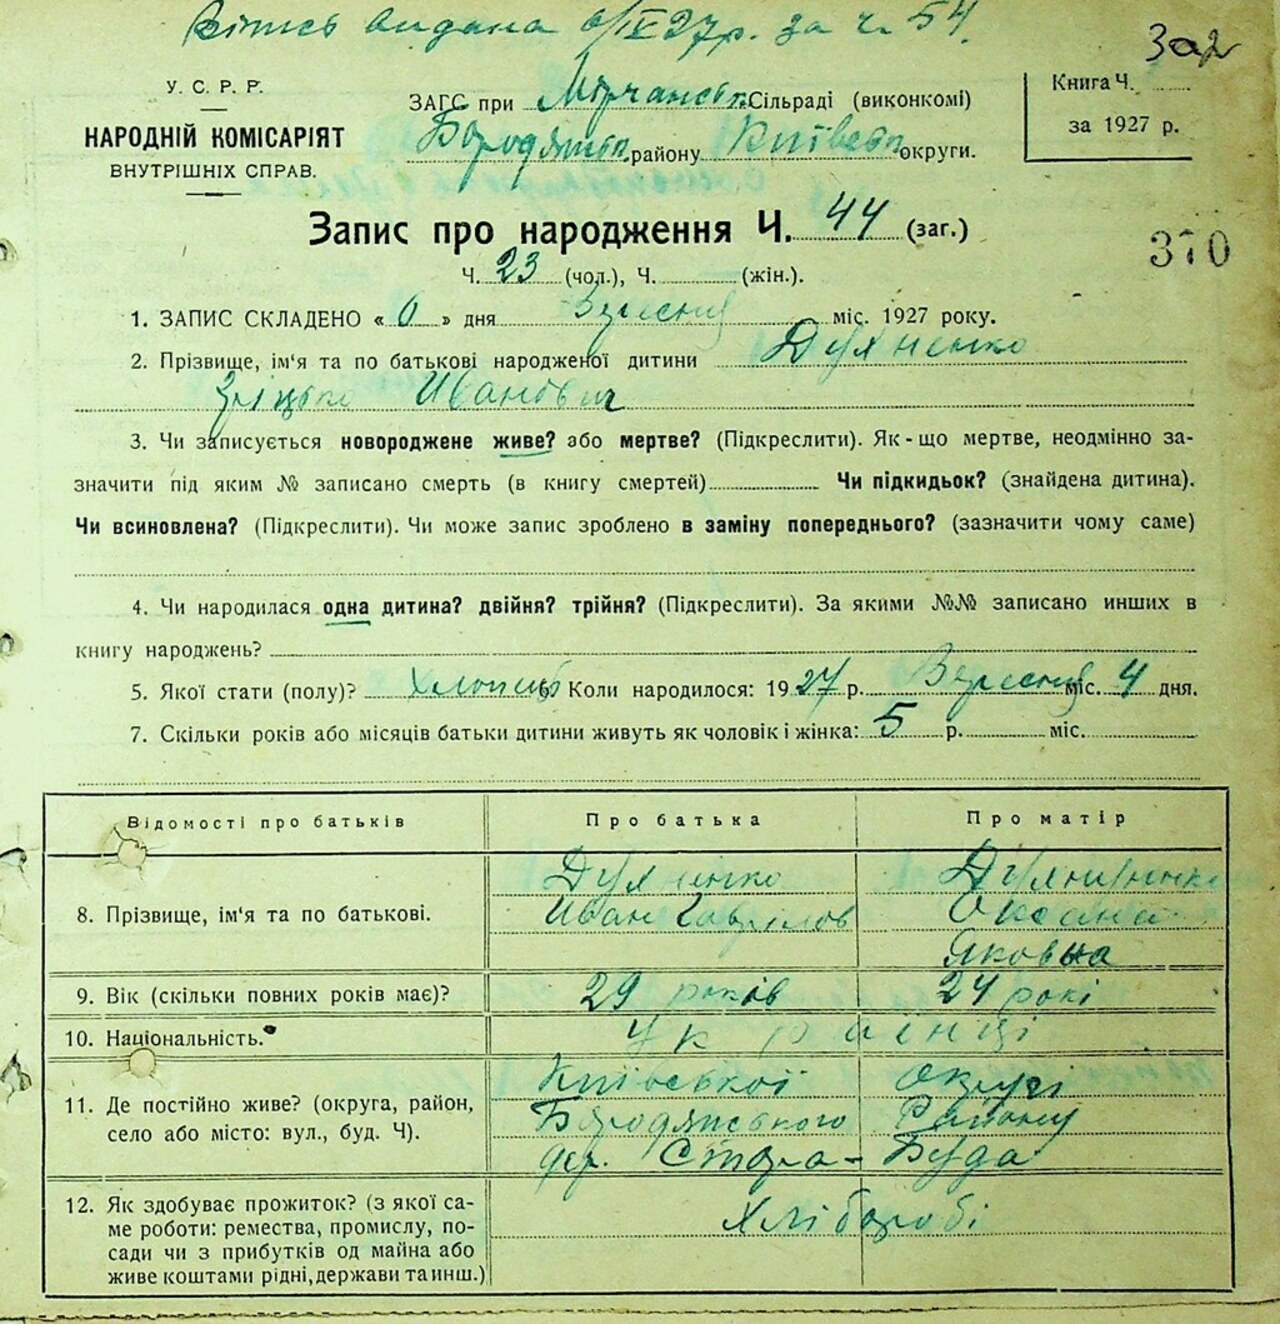 Витсь видана 6/IX 27р. за ч. 54.
У. С. Р. Р.
НАРОДНІЙ КОМІСАРІЯТ
ВНУТРІШНІХ СПРАВ.
ЗАГС при Мірчанськ. Сільраді (виконкомі)
Бородянськ. району Київськ округи.
Книга Ч.
за 1927 р.
370
Запис про народження Ч. 44 (заг.)
Ч. 23 (чол.), Ч. (жін.).
1. ЗАПИС СКЛАДЕНО « 6 » дня Вересня міс. 1927 року.
2. Прізвище, ім'я та по батькові народженої дитини Духненко
Грицько Иванович
3. Чи записується новороджене живе? або мертве? (Підкреслити). Як-що мертве, неодмінно за-
значити під яким № записано смерть (в книгу смертей) Чи підкидьок? (знайдена дитина).
Чи всиновлена? (Підкреслити). Чи може запис зроблено в заміну попереднього? (зазначити чому саме)
4. Чи народилася одна дитина? двійня? трійня? (Підкреслити). За якими №№ записано инших в
книгу народжень?
5. Якої стати (полу)? Хлопець 6. Коли народилося: 1927 р. Вересня міс. 4 дня.
7. Скільки років або місяців батьки дитини живуть як чоловік і жінка: 5 р. міс.
Відомості про батьків Про батька Про матір
8. Прізвище, ім'я та по батькові.
Духненко
Иван Гаврилов
Оксана
Яковна
9. Вік (скільки повних років має)? 29 років 24 рокі
10. Національність. Українці
11. Де постійно живе? (округа, район,
село або місто: вул., буд. Ч).
Київської округі
Бородянського Району
дер. Стара-Буда
12. Як здобуває прожиток? (з якої са-
ме роботи: ремества, промислу, по-
сади чи з прибутків од майна або
живе коштами рідні, держави та инш.)
Хлібороби